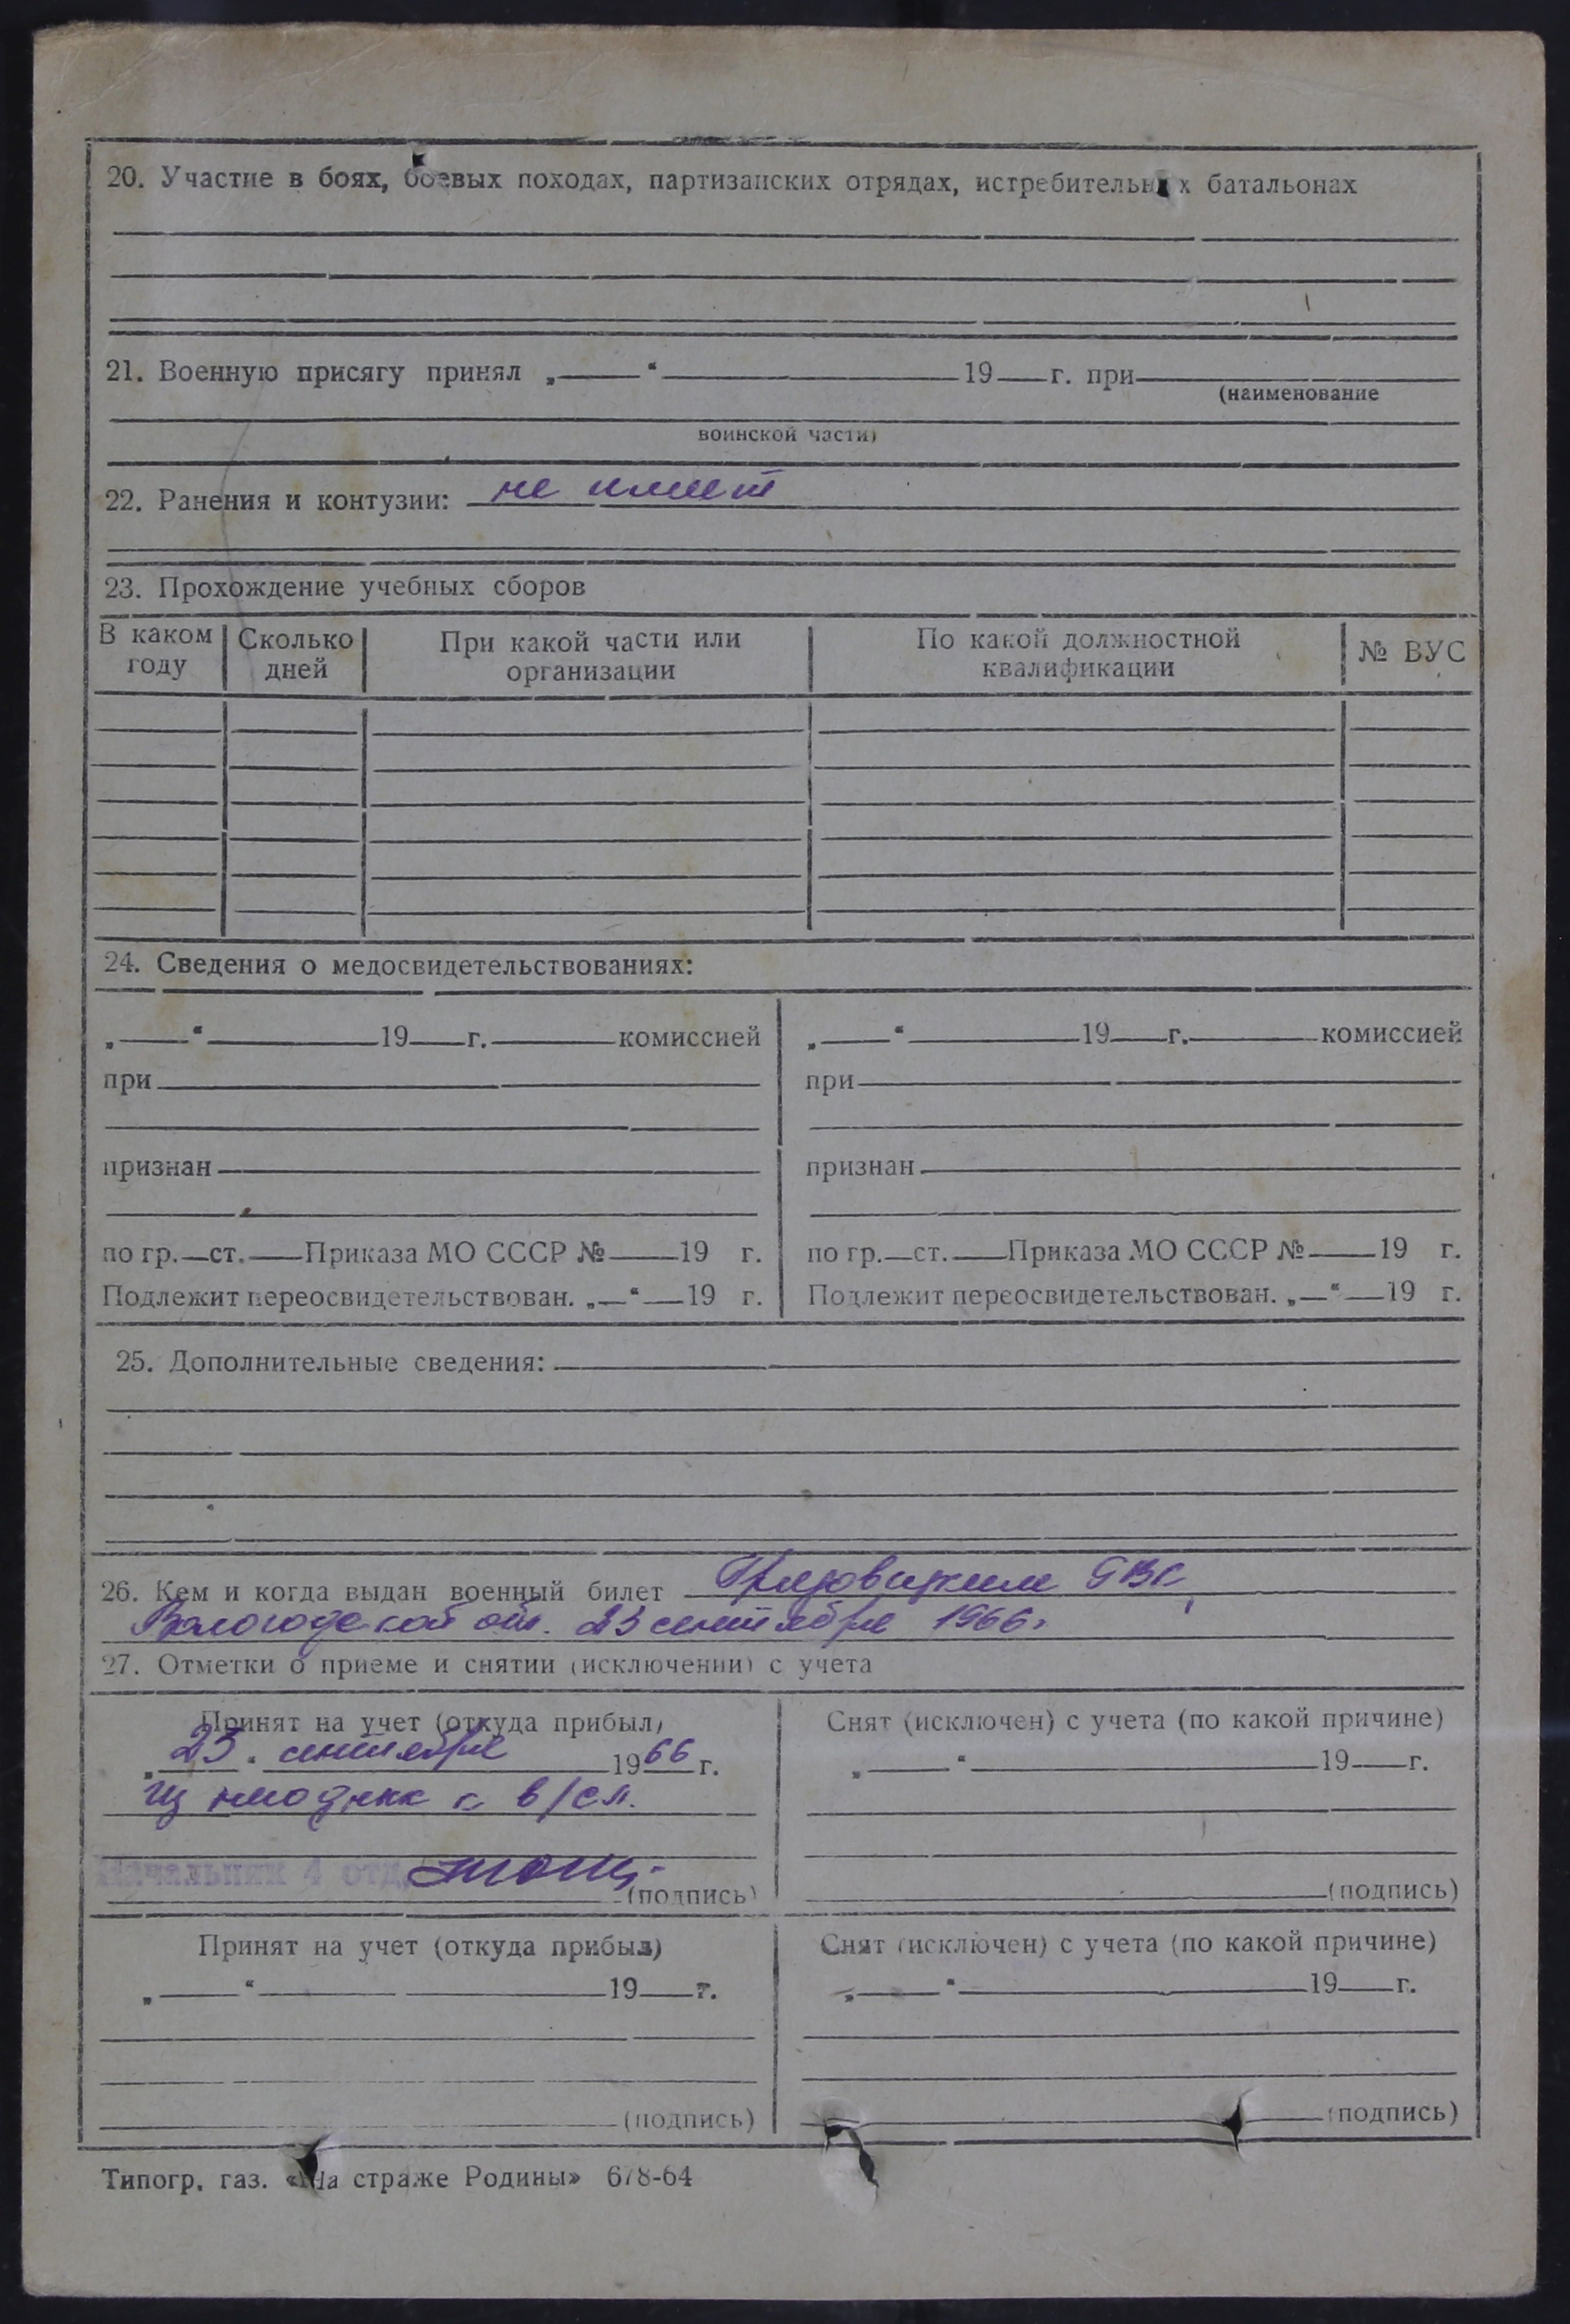 20. Участие в боях, боевых походах, партизанских отрядах, истребительных батальонах
21. Военную присягу принял „ “ 19 г. при
(наименование
воинской части)
22. Ранения и контузии: не имеет
23. Прохождение учебных сборов
В каком году Сколько дней При какой части или организации По какой должностной квалификации № ВУС
24. Сведения о медосвидетельствованиях:
„ “ 19 г. комиссией
при
признан
по гр. ст. Приказа МО СССР № 19 г.
Подлежит переосвидетельствован. „ “ 19 г.
„ “ 19 г. комиссией
при
признан
по гр. ст. Приказа МО СССР № 19 г.
Подлежит переосвидетельствован. „ “ 19 г.
25. Дополнительные сведения:
26. Кем и когда выдан военный билет Грязовецким
Вологодской обл. 23 сентября 1966.
27. Отметки о приеме и снятии (исключении) с учета
Принят на учет (откуда прибыл)
„23“ сентября 1966 г.
в/сл.
Начальник 4 отд.
(подпись)
Снят (исключен) с учета (по какой причине)
„ “ 19 г.
(подпись)
Принят на учет (откуда прибыл)
„ “ 19 г.
(подпись)
Снят (исключен) с учета (по какой причине)
„ “ 19 г.
(подпись)
Типогр. газ. «На страже Родины» 678-64